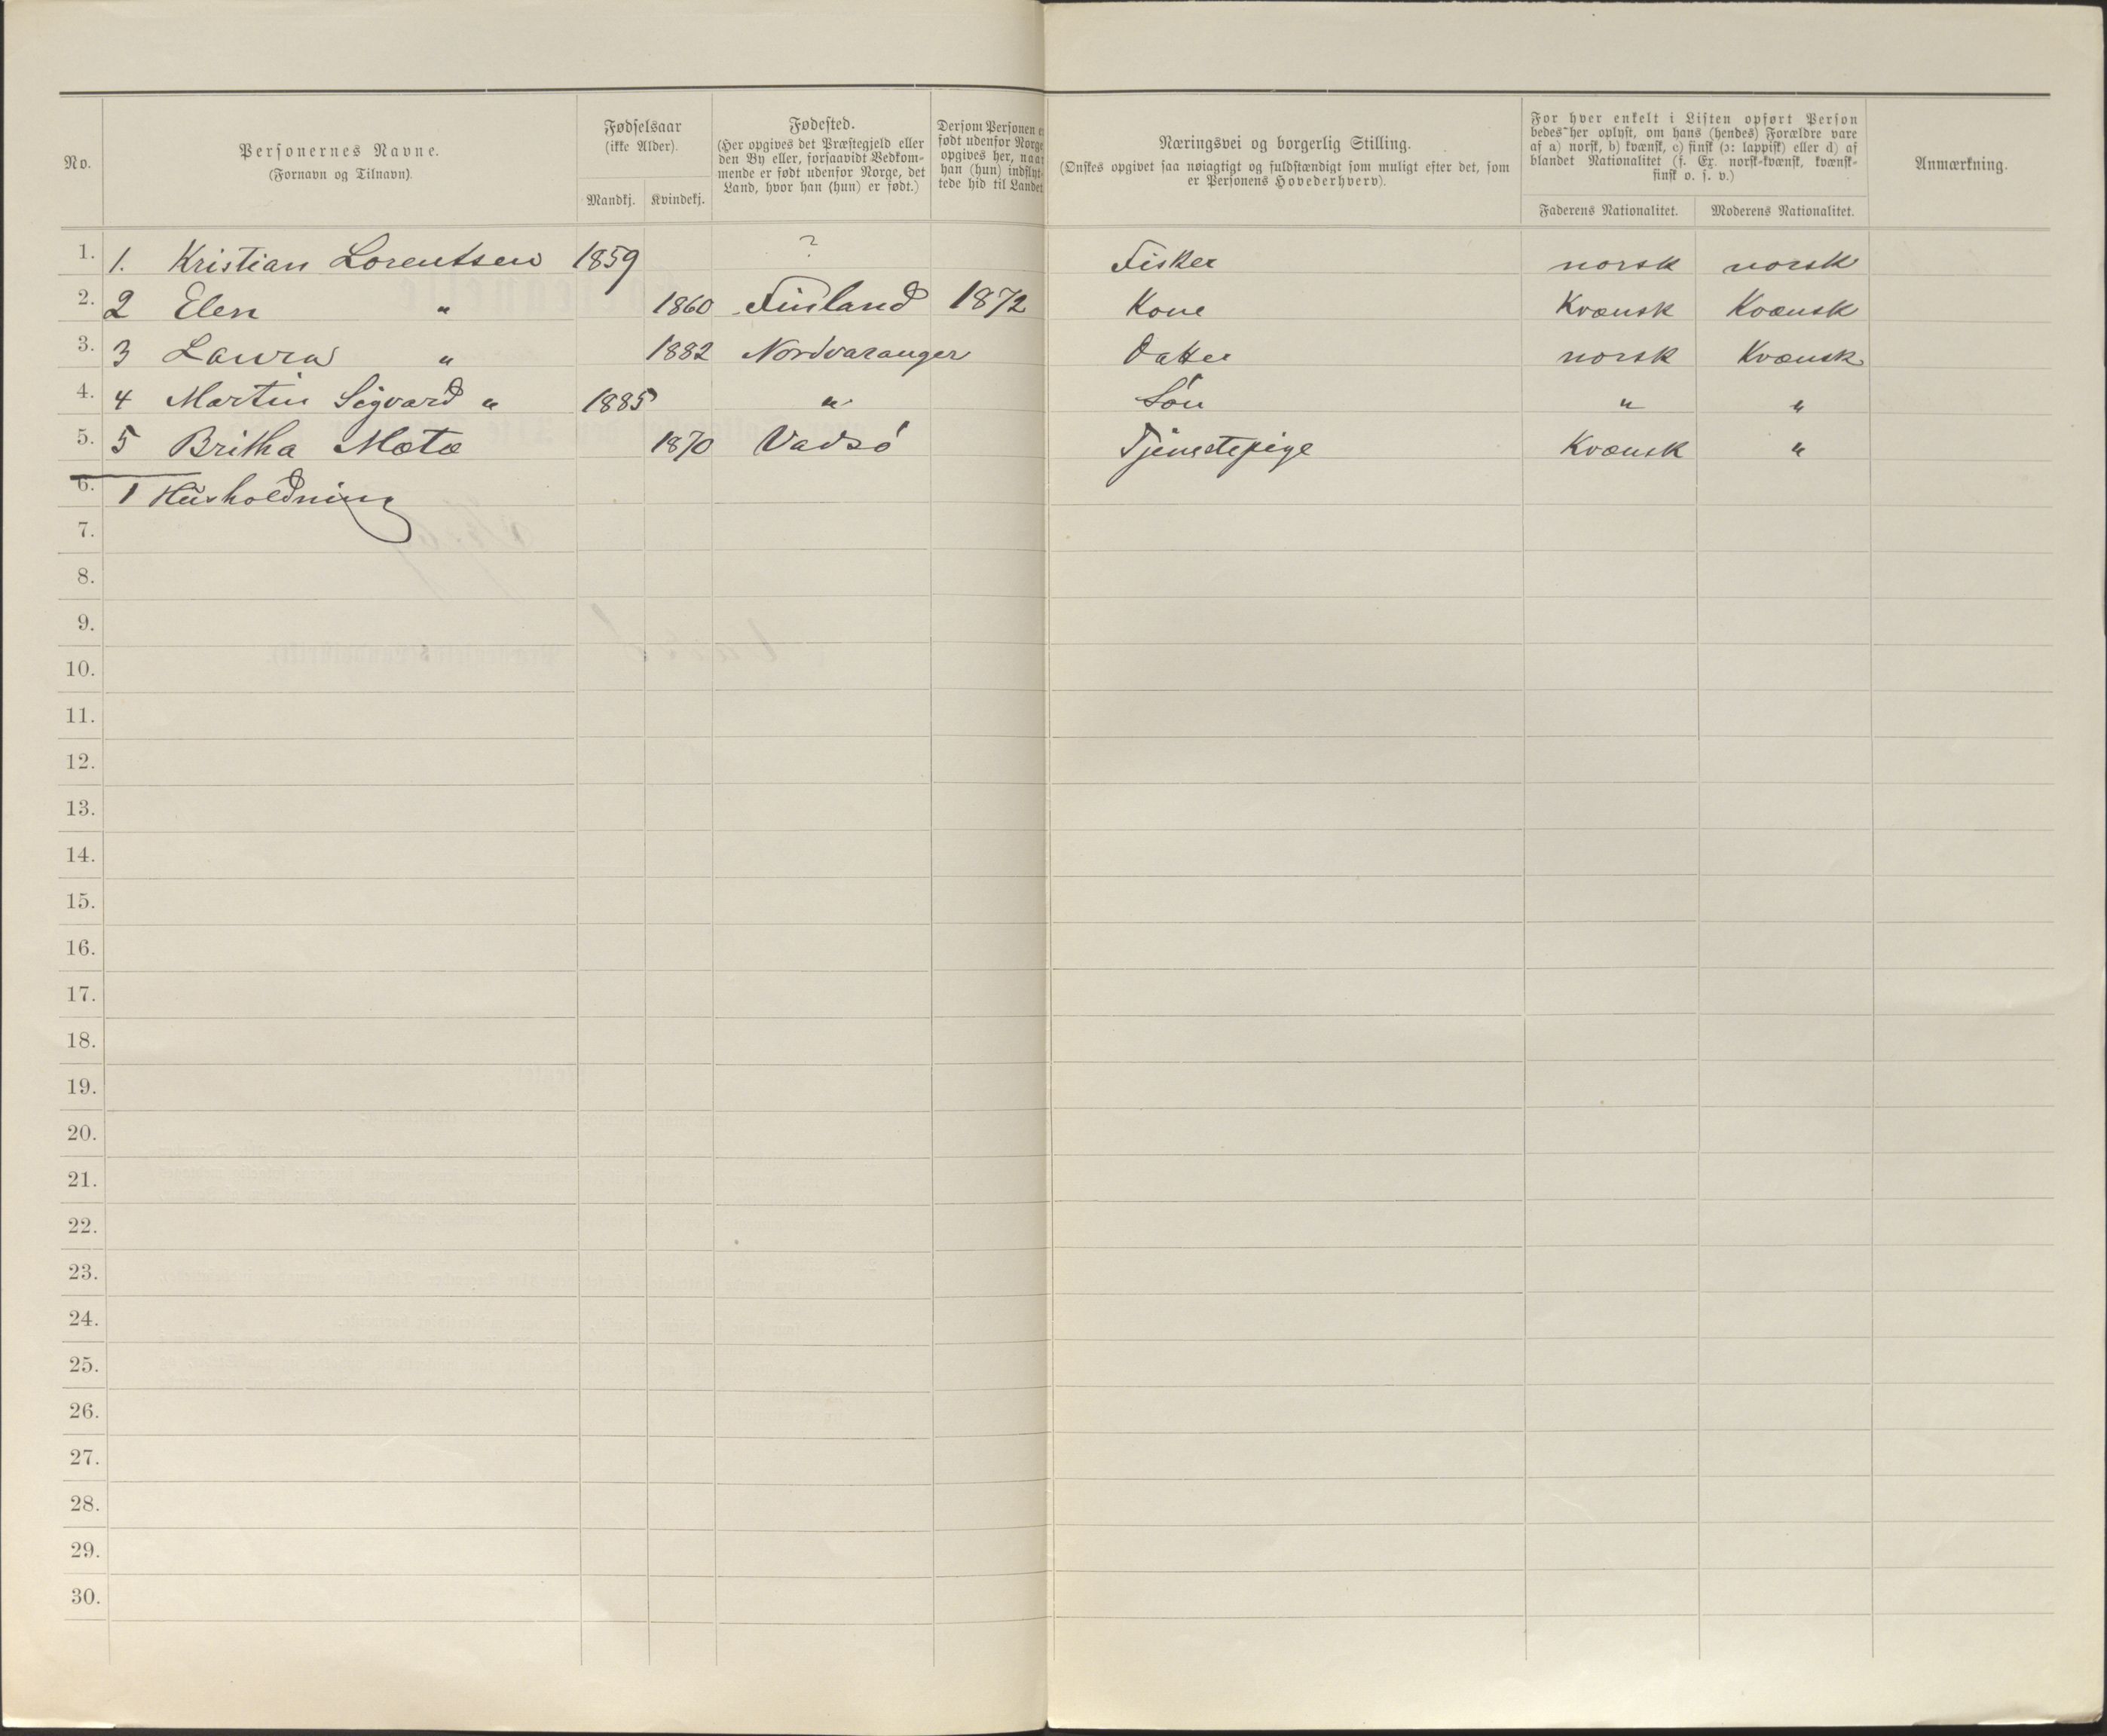 No.
Personernes Navne.
(Fornavn og Tilnavn).
Fødselsaar
(ikke Alder).
Mandkj. Kvindekj.
Fødested.
(Her opgives det Præstegjeld eller
den By eller, forsaavidt Vedkom-
mende er født udenfor Norge, det
Land, hvor han (hun) er født.)
Dersom Personen e
født udenfor Norge
opgives her, naar
han (hun) indflyt-
tede hid til Landet
Næringsvei og borgerlig Stilling.
(Ønskes opgivet saa nøiagtigt og fuldstændigt som muligt efter det, som
er Personens Hovederhverv).
For hver enkelt i Listen opført Person
bedes her oplyst, om hans (hendes) Forældre vare
af a) norsk, b) kvænsk, c) finsk (ɔ: lappisk) eller d) af
blandet Nationalitet (f. Ex. norsk-kvænsk, kvænsk-
finsk o. s. v.)
Faderens Nationalitet. Moderens Nationalitet.
Anmærkning.
1. 1. Kristian Lorentsen 1859 ? Fisker norsk norsk
2. 2 Elen " 1860 Finland 1872 Kone Kvænsk Kvænsk
3. 3 Laura " 1882 Nordvaranger Datter norsk Kvænsk
4. 4 Martin Sigvard " 1885 " Søn " "
5. 5 Britha Mætæ 1870 Vadsó Tjenestepige Kvænsk "
6. 1 Husholdning
7.
8.
9.
10.
11.
12.
13.
14.
15.
16.
17.
18.
19.
20.
21.
22.
23.
24.
25.
26.
27.
28.
29.
30.